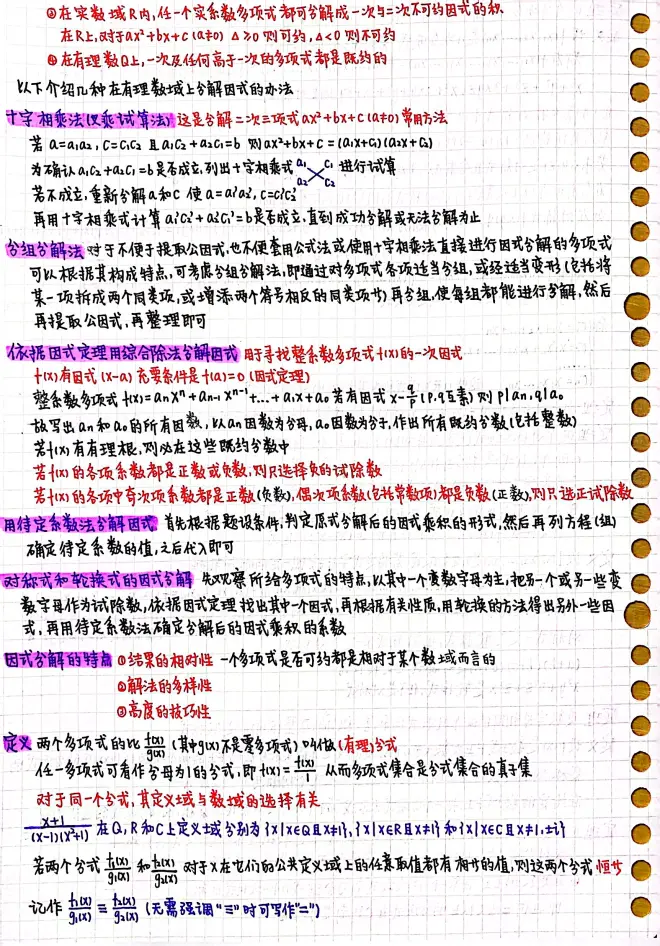 ②在实数域R内,任一个实系数多项式都可分解成一次与二次不可约因式的积
在R上,对于ax²+bx+c (a≠0) Δ≥0则可约,Δ<0则不可约
在有理数Q上,一次及任何高于一次的多项式都是既约的
以下介绍几种在有理数域上分解因式的办法
十字相乘法(叉乘试算法) 这是分解二次三项式ax²+bx+c (a≠0)常用方法
若a=a₁a₂, c=c₁c₂ 且 a₁c₂+a₂c₁=b 则 ax²+bx+c=(a₁x+c₁)(a₂x+c₂)
为了确认a₁c₂+a₂c₁=b是否成立,列出十字相乘式 a₁ c₁ a₂ c₂ 进行试算
若不成立,重新分解a和c 使 a=a₁'a₂', c=c₁'c₂'
再用十字相乘式计算a₁'c₂'+a₂'c₁'=b是否成立,直到成功分解或无法分解为止
分组分解法 对于不便于提取公因式,也不便套用公式法或使用十字相乘法直接进行因式分解的多项式
可以根据其构成特点,可考虑分组分解法,即通过对多项式各项适当分组,或经适当变形(包括将
某一项拆成两个同类项,或增添两个符号相反的同类项等)再分组,使每组都能进行分解,然后
再提取公因式,再整理即可
依据因式定理用综合除法分解因式 用于寻找整系数多项式f(x)的一次因式
f(x)有因式(x-a)充要条件是f(a)=0 (因式定理)
整系数多项式 f(x)=aₙxⁿ+aₙ₋₁xⁿ⁻¹+...+a₁x+a₀ 若有因式 x-q/p (p,q互素) 则 p|aₙ, q|a₀
故写出aₙ和a₀的所有因数,以aₙ因数为分母,a₀因数为分子,作出所有既约分数(包括整数)
若f(x)有有理根,则必在这些既约分数中
若f(x)的各项系数都是正数或负数,则只选择负的试除数
若f(x)的各项中奇次项系数都是正数(负数),偶次项系数(包括常数项)都是负数(正数),则只选正试除数
用待定系数法分解因式 首先根据题设条件,判定原式分解后的因式乘积的形式,然后再列方程(组)
确定待定系数的值,之后代入即可
对称式和轮换式的因式分解 先观察所给多项式的特点,以其中一个变数字母为主,把另一个或另一些变
数字母作为试除数,依据因式定理找出其中一个因式,再根据有关性质,用轮换的方法得出另外一些因
式,再用待定系数法确定分解后的因式乘积的系数
因式分解的特点 ①结果的相对性 一个多项式是否可约都是相对于某个数域而言的
②解法的多样性
③高度的技巧性
定义 两个多项式的比 f(x)/g(x) (其中g(x)不是零多项式)叫做(有理)分式
任一多项式可看作分母为1的分式,即 f(x)=f(x)/1 从而多项式集合是分式集合的真子集
对于同一个分式,其定义域与数域的选择有关
x+1/(x-1)(x²+1) 在Q,R和C上定义域分别为{x|x∈Q且x≠1},{x|x∈R且x≠1}和{x|x∈C且x≠1,±i}
若两个分式 f₁(x)/g₁(x) 和 f₂(x)/g₂(x) 对于x在它们的公共定义域上的任意取值都有相等的值,则这两个分式恒等
记作 f₁(x)/g₁(x) ≡ f₂(x)/g₂(x) (无需强调"≡"时可写作"=")